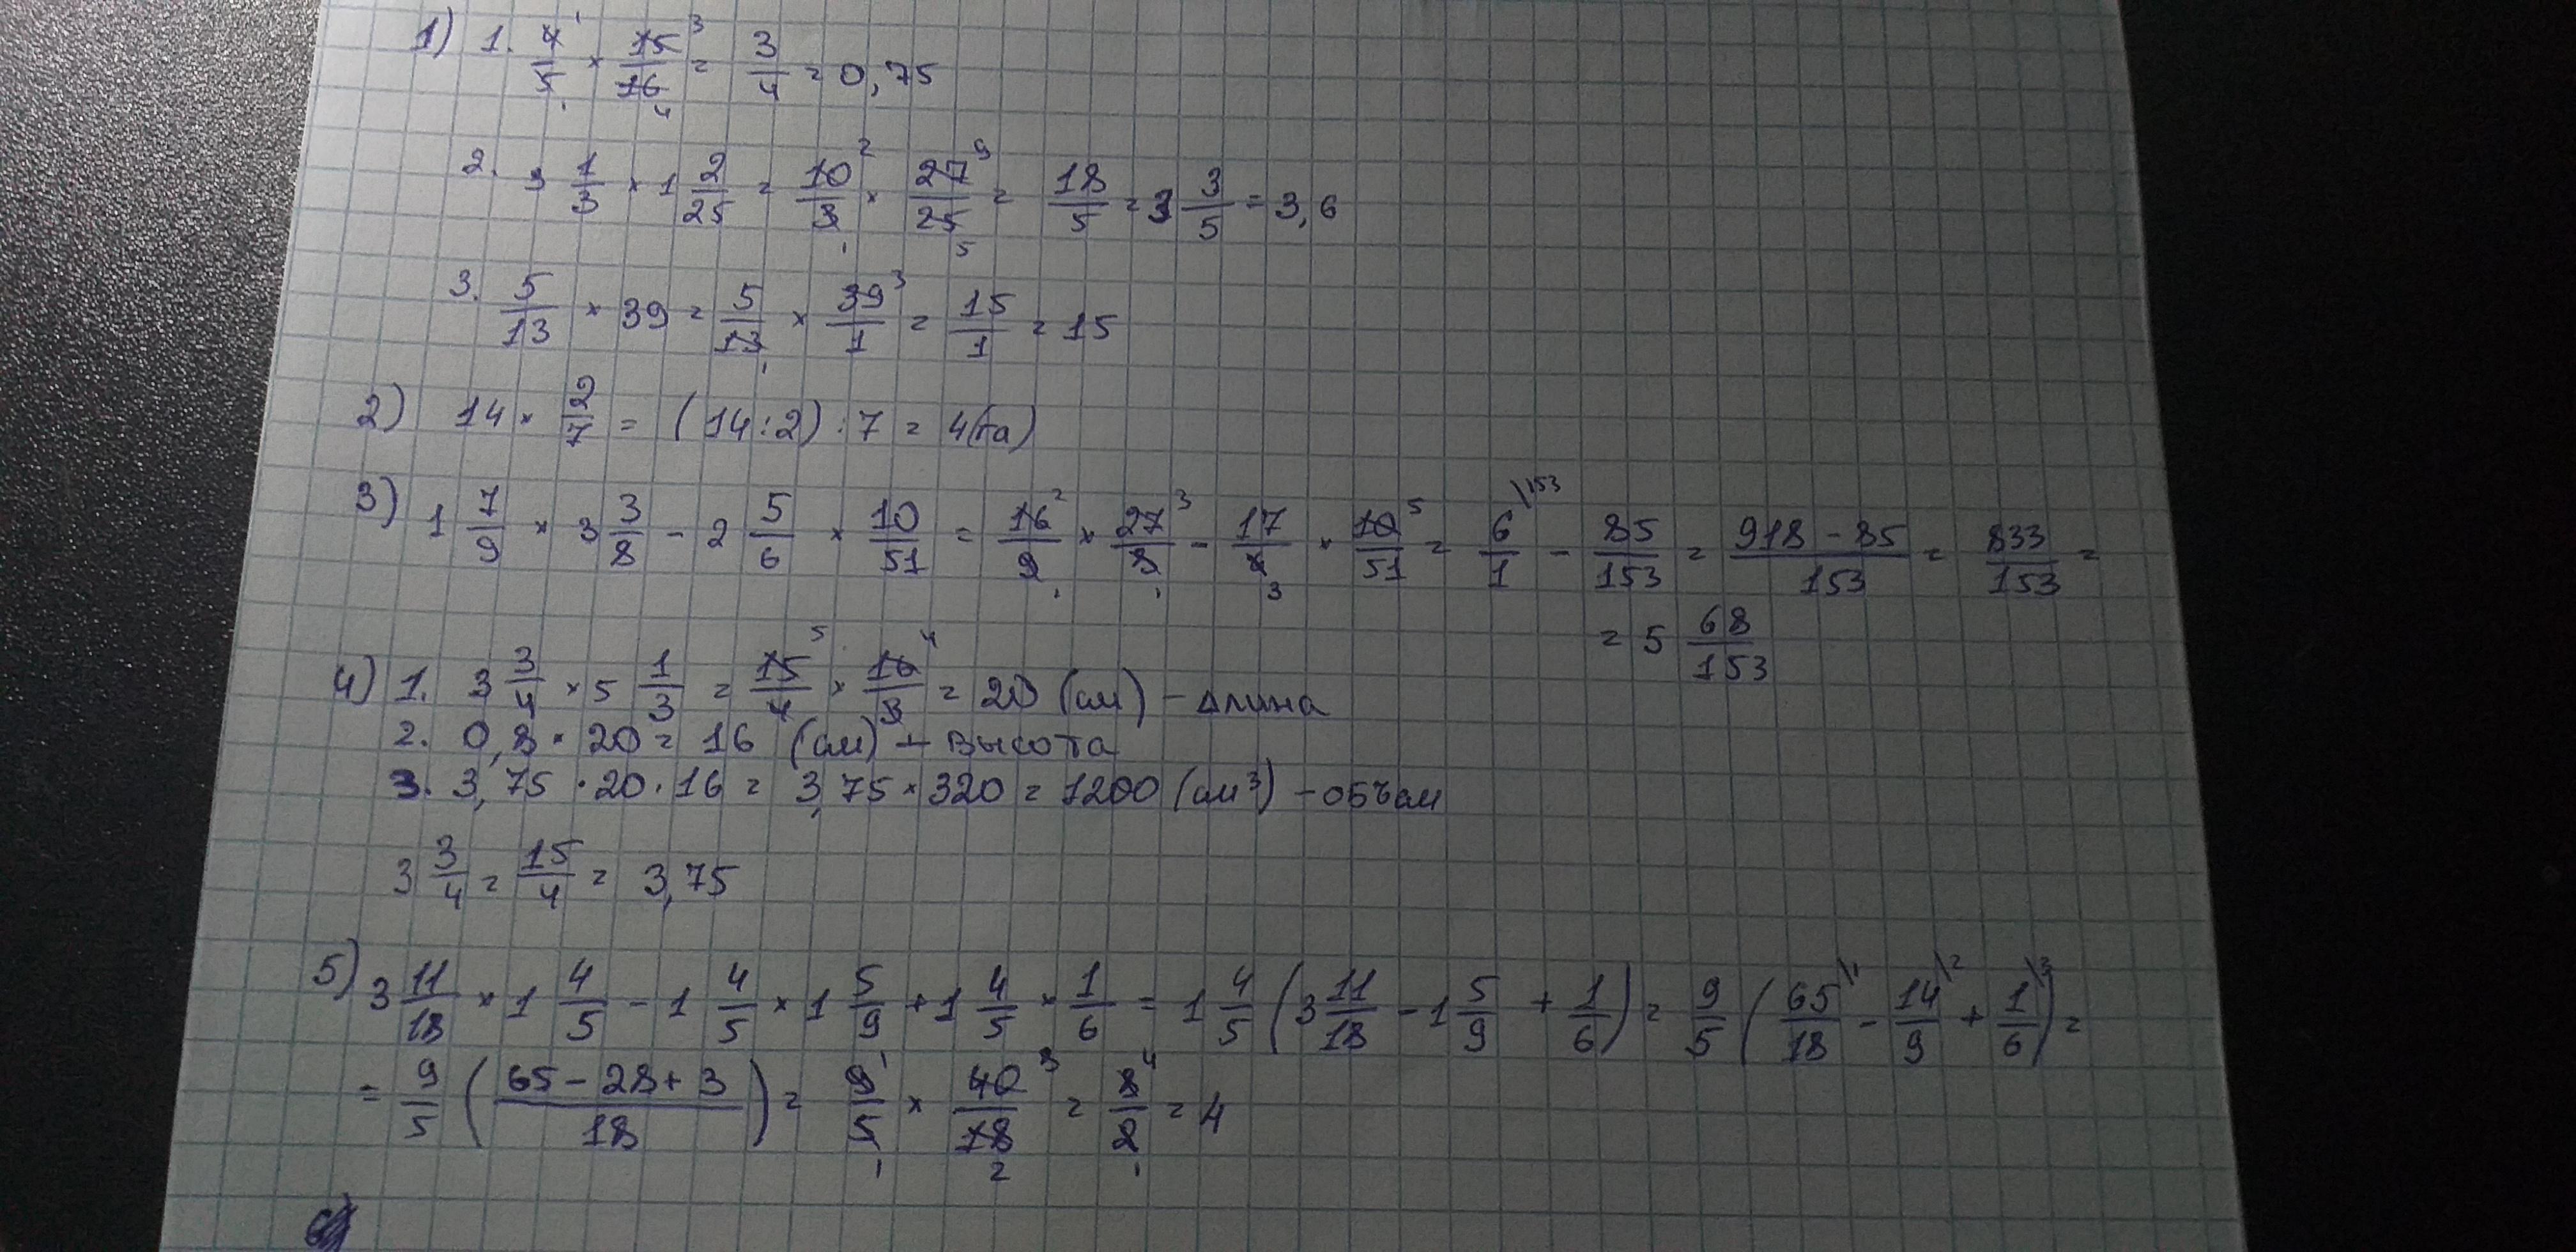 1) 1. 4/5 × 15/16 = 3/4 = 0,75
2. 3 1/3 × 1 2/25 = 10/3 × 27/25 = 18/5 = 3 3/5 = 3,6
3. 5/13 × 39 = 5/13 × 39/1 = 15/1 = 15
2) 14 × 2/7 = (14:2):7 = 4(га)
3) 1 7/9 × 3 3/8 - 2 5/6 × 10/51 = 16/9 × 27/8 - 17/6 × 10/51 = 6/1 - 85/153 = 918-85/153 = 833/153 =
= 5 68/153
4) 1. 3 3/4 × 5 1/3 = 15/4 × 16/3 = 20 (см) - длина
2. 0,8 · 20 = 16 (см) - высота
3. 3,75 · 20 · 16 = 3,75 × 320 = 1200 (см³) - объем
3 3/4 = 15/4 = 3,75
5) 3 11/18 × 1 4/5 - 1 4/5 × 1 5/9 + 1 4/5 × 1/6 = 1 4/5 (3 11/18 - 1 5/9 + 1/6) = 9/5 (65/18 - 14/9 + 1/6) =
= 9/5 (65-28+3/18) = 9/5 × 40/18 = 8/2 = 4